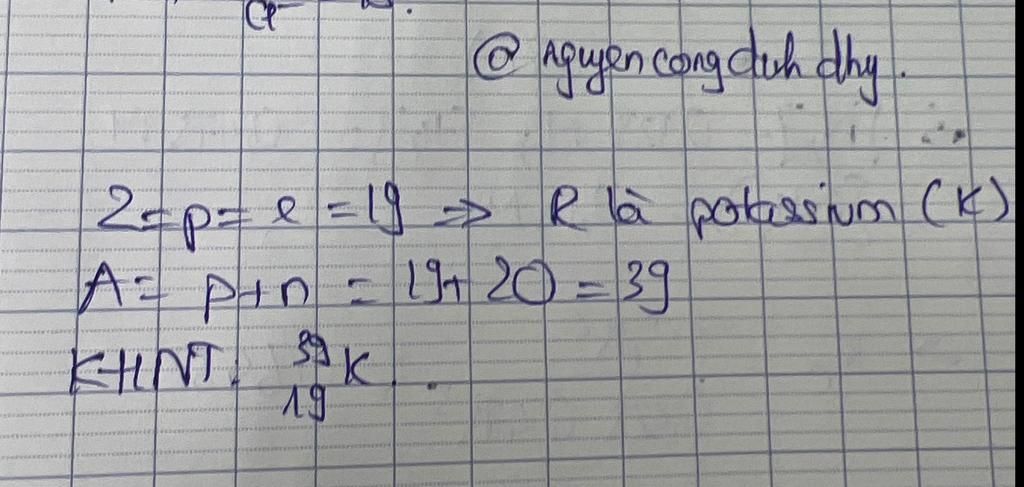 Cl
@ nguyencongduhdhy.
Z=p=e=19 => R là potassium (K)
A= p+n = 19+20=39
KHNT: ³⁹₁₉K.